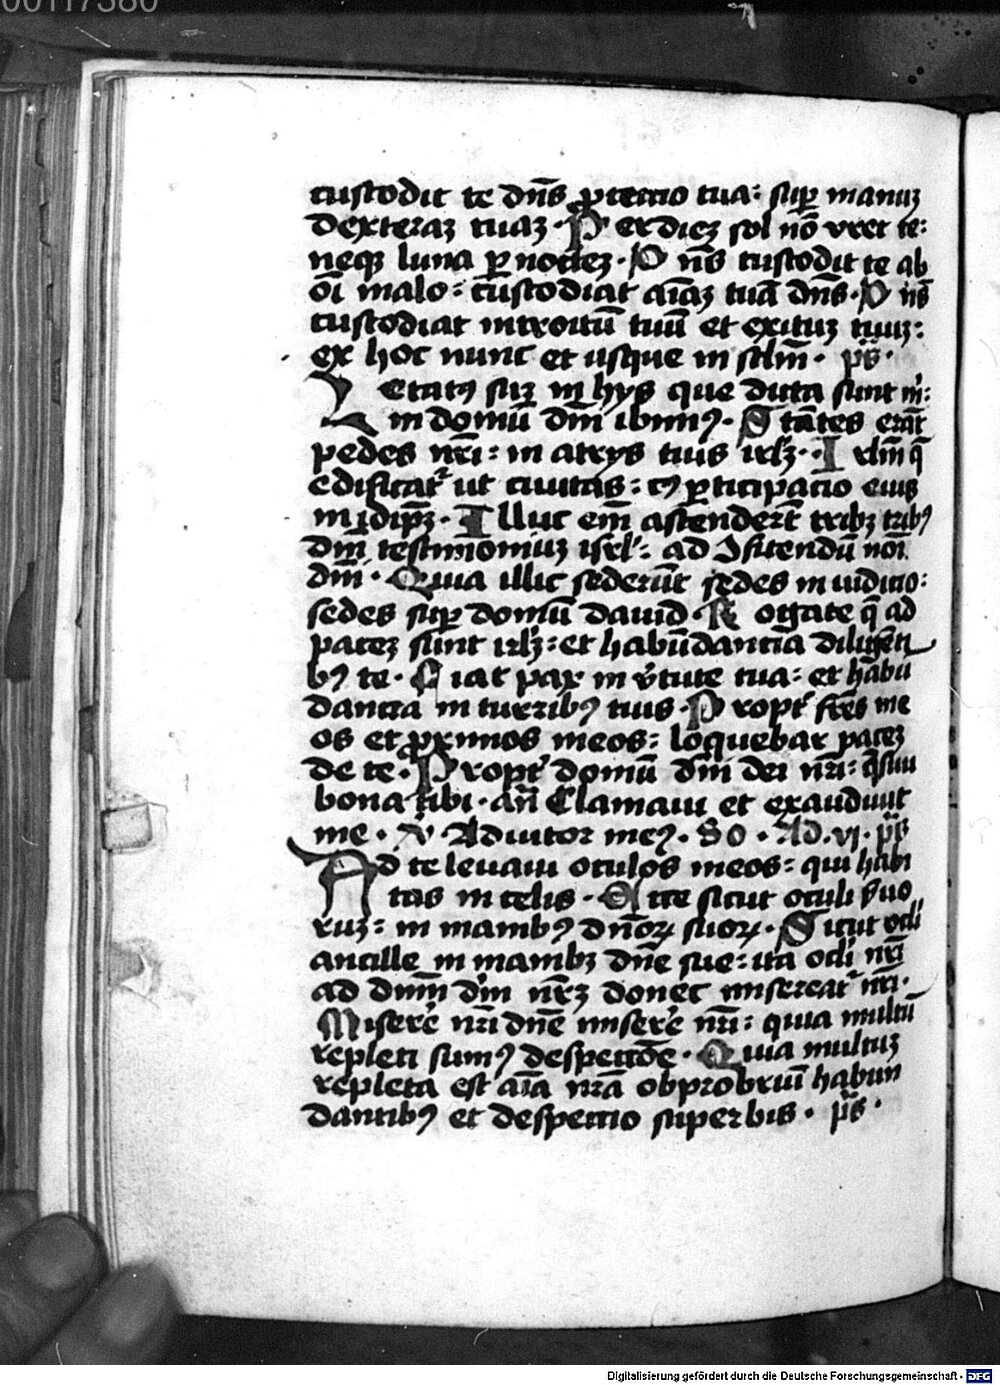 00117380
custodit te dn̄s ꝓtectio tua: suꝑ manuꝫ
dexteraꝫ tuaꝫ · Per dieꝫ sol nō vret te:
neqꝫ luna ꝑ nocteꝫ · Dn̄s custodit te ab
oī malo: custodiat aīaꝫ tuā dn̄s · Dn̄s
custodiat introitū tuū et exituꝫ tuuꝫ:
ex hoc nunc et usque in sclm̄ · ps̄ ·
Letatꝰ suꝫ in hys que dicta sunt m̄:
in domū dn̄i ibimꝰ · Stātes erāt
pedes nr̄i: in atrys tuis irlꝫ · Irlm̄ q̄
edificat᷑ ut ciuitas: cꝰ ꝑticipacio eius
in idip̄ꝫ · Illuc em̄ ascenderūt tribꝫ tribꝰ
dn̄i testimoniuꝫ isrl̄: ad ꝯfitendū noī
dn̄i · Quia illic sederūt sedes in iudicio:
sedes suꝑ domū dauid · Rogate q̄ ad
paceꝫ sunt irlꝫ: et habūdancia diligēti
bꝰ te · Fiat pax in v̄tute tua: et habū
dancia in turribꝰ tuis · Propt᷑ frēs me
os et ꝓximos meos: loquebar paceꝫ
de te · Propt᷑ domū dn̄i dei nr̄i: q̄siui
bona tibi · an̄ Clamaui et exaudiuit
me · V Adiutor meꝰ · So · Ad · vj · ps̄
Ad te leuaui oculos meos: qui habi
tas in celis · Ecce sicut oculi s̄uo
ruꝫ: in manibꝰ dn̄oꝝ suoꝝ · Sicut ocli
ancille in manibꝫ dn̄e sue: ita ocli nr̄i
ad dn̄m d'm nr̄ꝫ donec misereat᷑ nr̄i ·
Miser̄e nr̄i dn̄e miser̄e nr̄i: quia multū
repleti sumꝰ despectiōe · Quia multuꝫ
repleta est aīa nr̄a obprobriū habun
dantibꝰ et despectio superbis · ps̄ ·
Digitalisierung gefördert durch die Deutsche Forschungsgemeinschaft - DFG